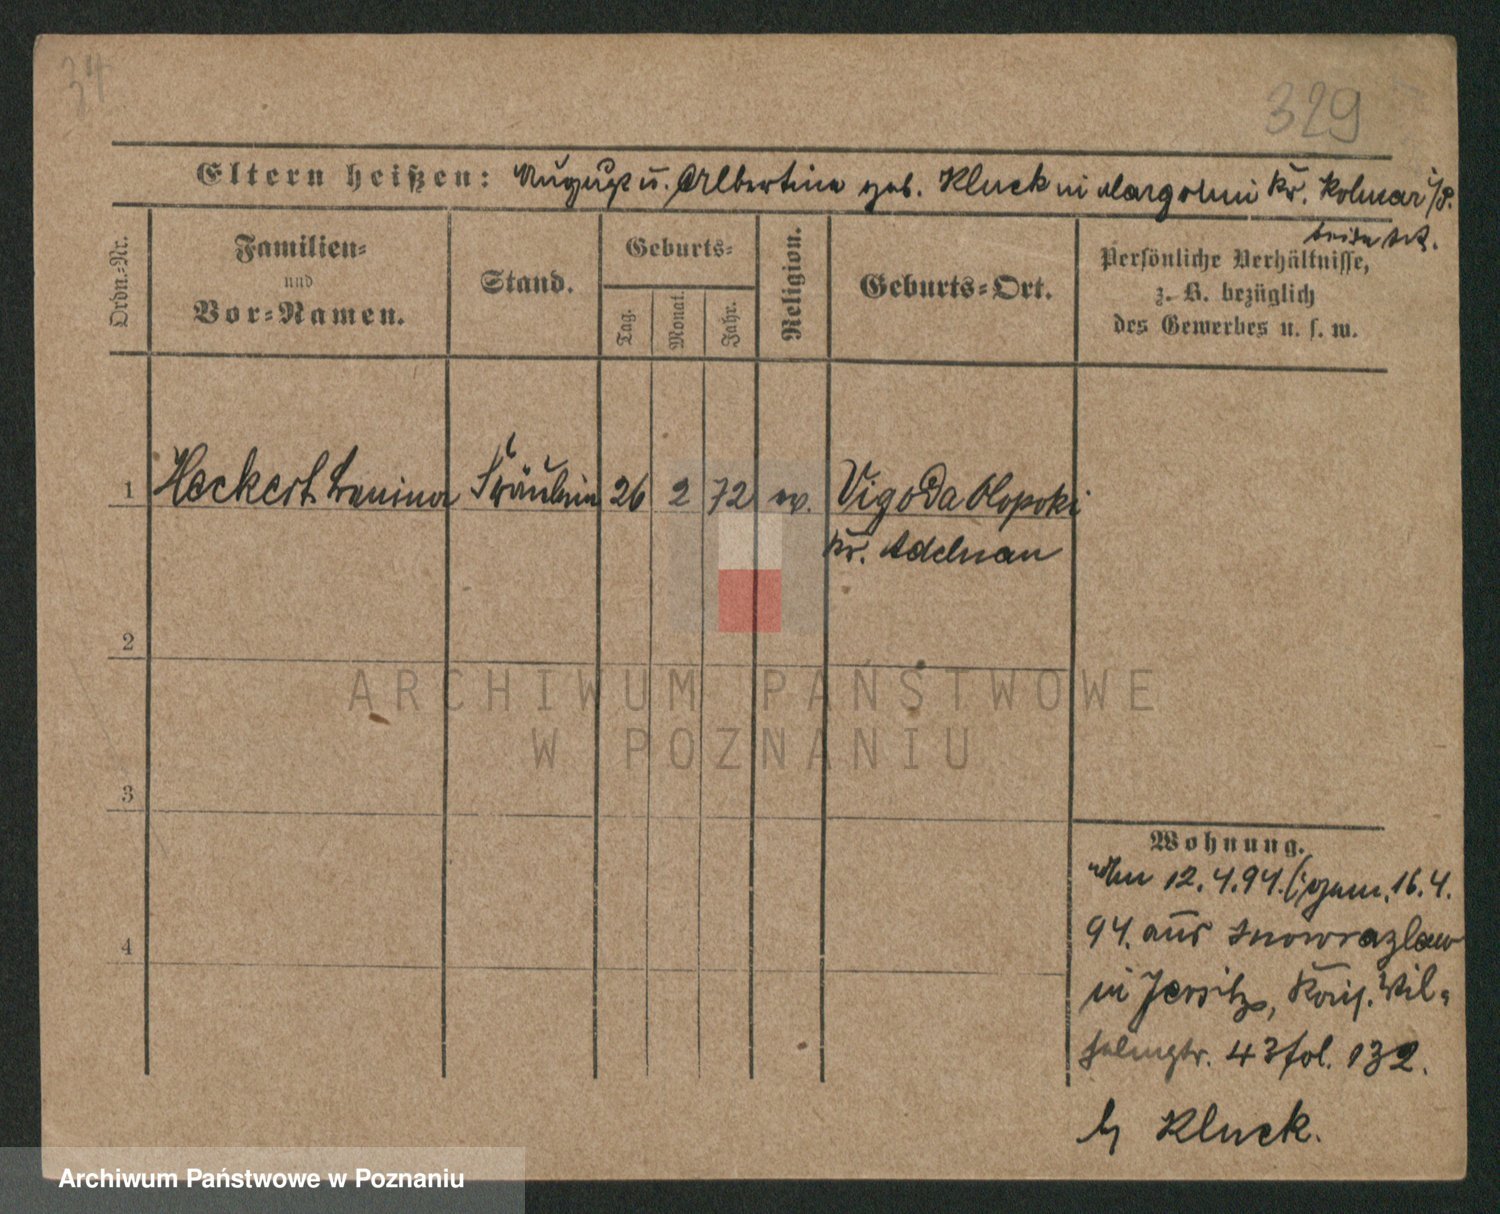 34
329
Eltern heißen: August u. Albertine geb. Kluck in Margonin Kr. Kolmar i/P.
beide tot.
Ordn.-Nr.
Familien-
und
Vor-Namen.
Stand.
Geburts-
Tag.
Monat.
Jahr.
Religion.
Geburts-Ort.
Persönliche Verhältnisse,
z. B. bezüglich
des Gewerbes u. s. w.
1 Heckert Fräulein 26 2 72 ev. Vigoda
Kr. Adelnau
2
3
4
Wohnung.
Am 12.4.94. (: gem. 16.4.
94. aus Inowrazlaw
in Jersitz, Kais. Wil-
helmstr. 43 fol. 132.
b/ Kluck.
ARCHIWUM PAŃSTWOWE
W POZNANIU
Archiwum Państwowe w Poznaniu